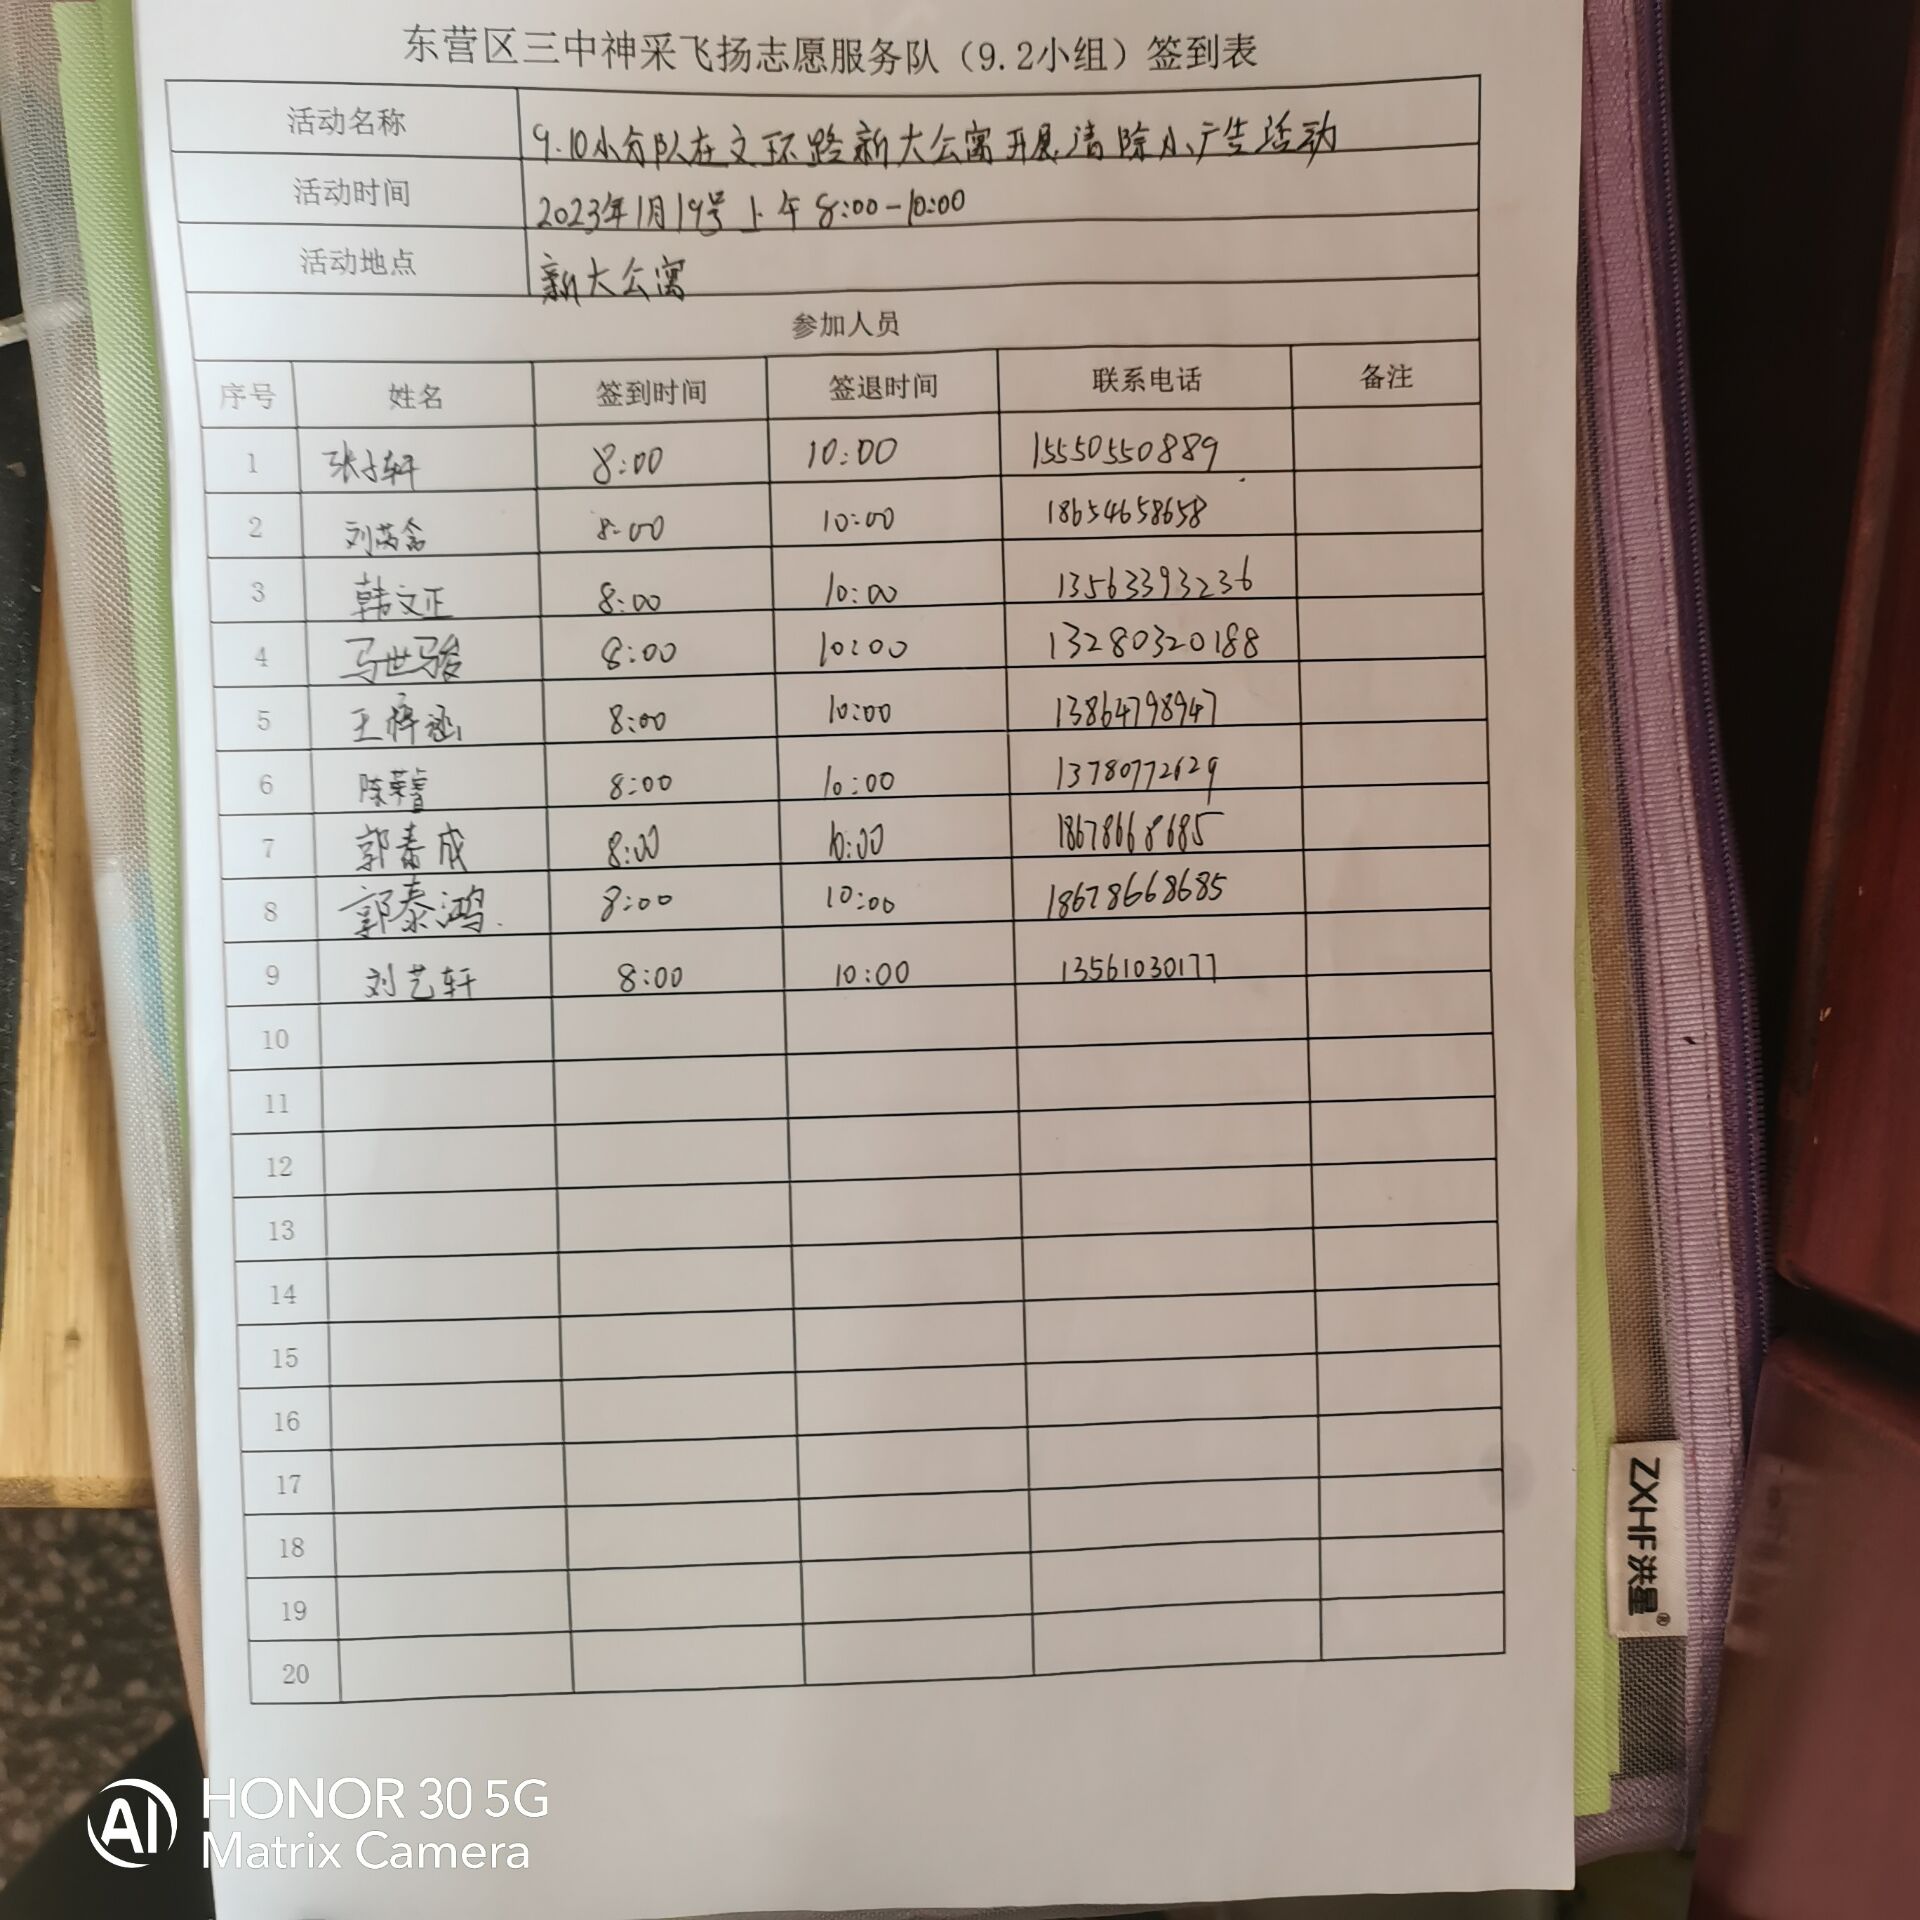 东营区三中神采飞扬志愿服务队（9.2小组）签到表
活动名称 9.10小分队在文环路新大公寓开展清除小广告活动
活动时间 2023年1月19号上午8:00-10:00
活动地点 新大公寓
参加人员
序号 姓名 签到时间 签退时间 联系电话 备注
1 张子轩 8:00 10:00 15550550889
2 刘芮含 8:00 10:00 18654658658
3 韩文正 8:00 10:00 13563393236
4 马世骏 8:00 10:00 13280320188
5 王梓涵 8:00 10:00 13864798947
6 陈荣睿 8:00 10:00 13780772629
7 郭泰成 8:00 10:00 18678668685
8 郭泰鸿. 8:00 10:00 18678668685
9 刘艺轩 8:00 10:00 13561030177
10
11
12
13
14
15
16
17
18
19
20
ZXHF洪星®
AI HONOR 30 5G
Matrix Camera